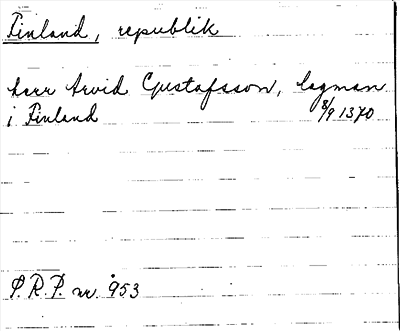 Finland, republik
herr Arvid Gustafsson, lagman
i Finland 8/9 1370
S.R.P. nr. 953